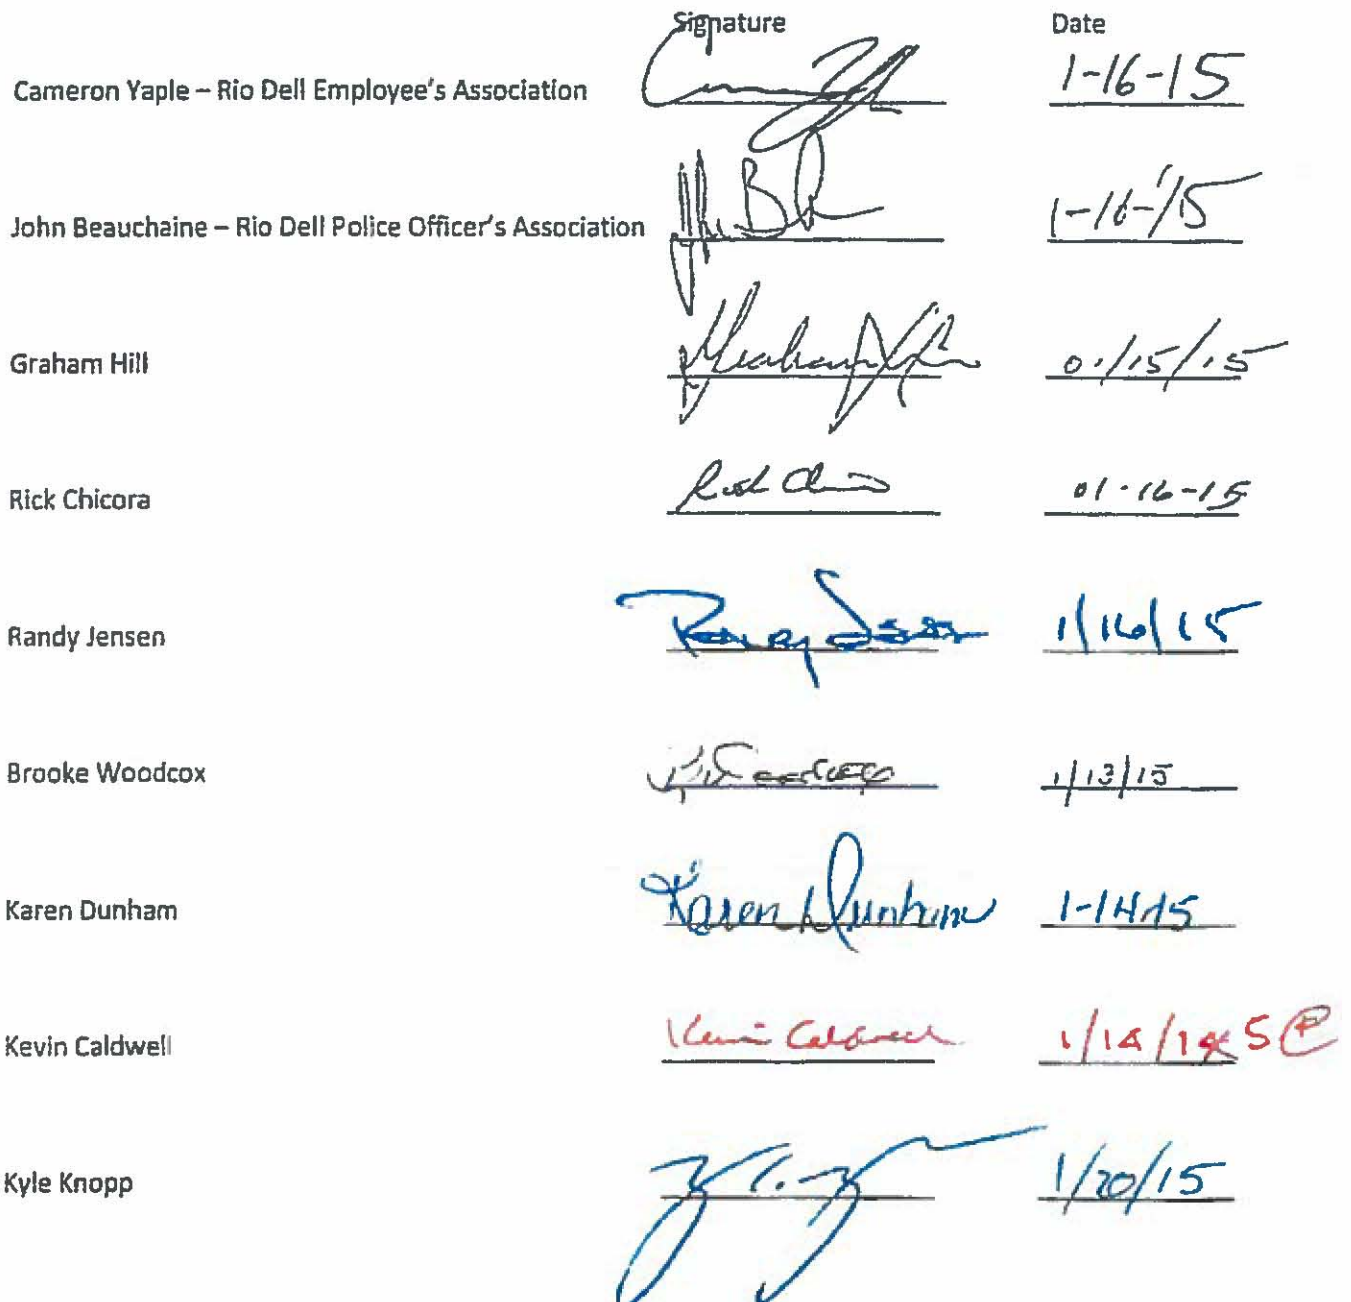 Signature Date
Cameron Yaple – Rio Dell Employee's Association 1-16-15
John Beauchaine – Rio Dell Police Officer's Association 1-16-15
Graham Hill Graham Hill 01/15/15
Rick Chicora 01-16-15
Randy Jensen Randy Jensen 1/16/15
Brooke Woodcox 1/13/15
Karen Dunham Karen Dunham 1-14-15
Kevin Caldwell Kevin Caldwell 1/14/14 5
Kyle Knopp 1/20/15